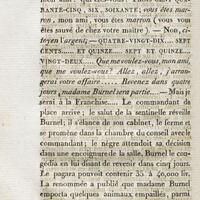 BANTE-CINQ, SIX, SOIXANTE; vous êtes mar-
ron, mon ami; vous êtes marron (vous vous
êtes sauvé de chez votre maître). — Non, ci-
toyen l'argent; — QUATRE-VINGT-DIX.... SEPT
CENTS..... ET QUINZE.... SEPT ET QUINZE...
VINGT-DEUX.... Que me voulez-vous, mon ami,
que me voulez-vous? Allez, allez, j'arran-
gerai votre affaire..... Revenez dans quatre
jours, madame Burnel sera partie.... — Mais je
serai à la Franchise.... Le commandant de
place arrive; le salut de la sentinelle réveille
Burnel; il s'élance de son cabinet, le ferme et
se promène dans la chambre du conseil avec le
commandant; le nègre attendoit sa décision
dans une encoignure de la salle, Burnel le con-
gédia en lui disant de revenir dans cinq jours.
Le pagara pouvoit contenir 35 à 40,000 liv.
La renommée a publié que madame Burnel
emporta quelques animaux, empaillés, parmi